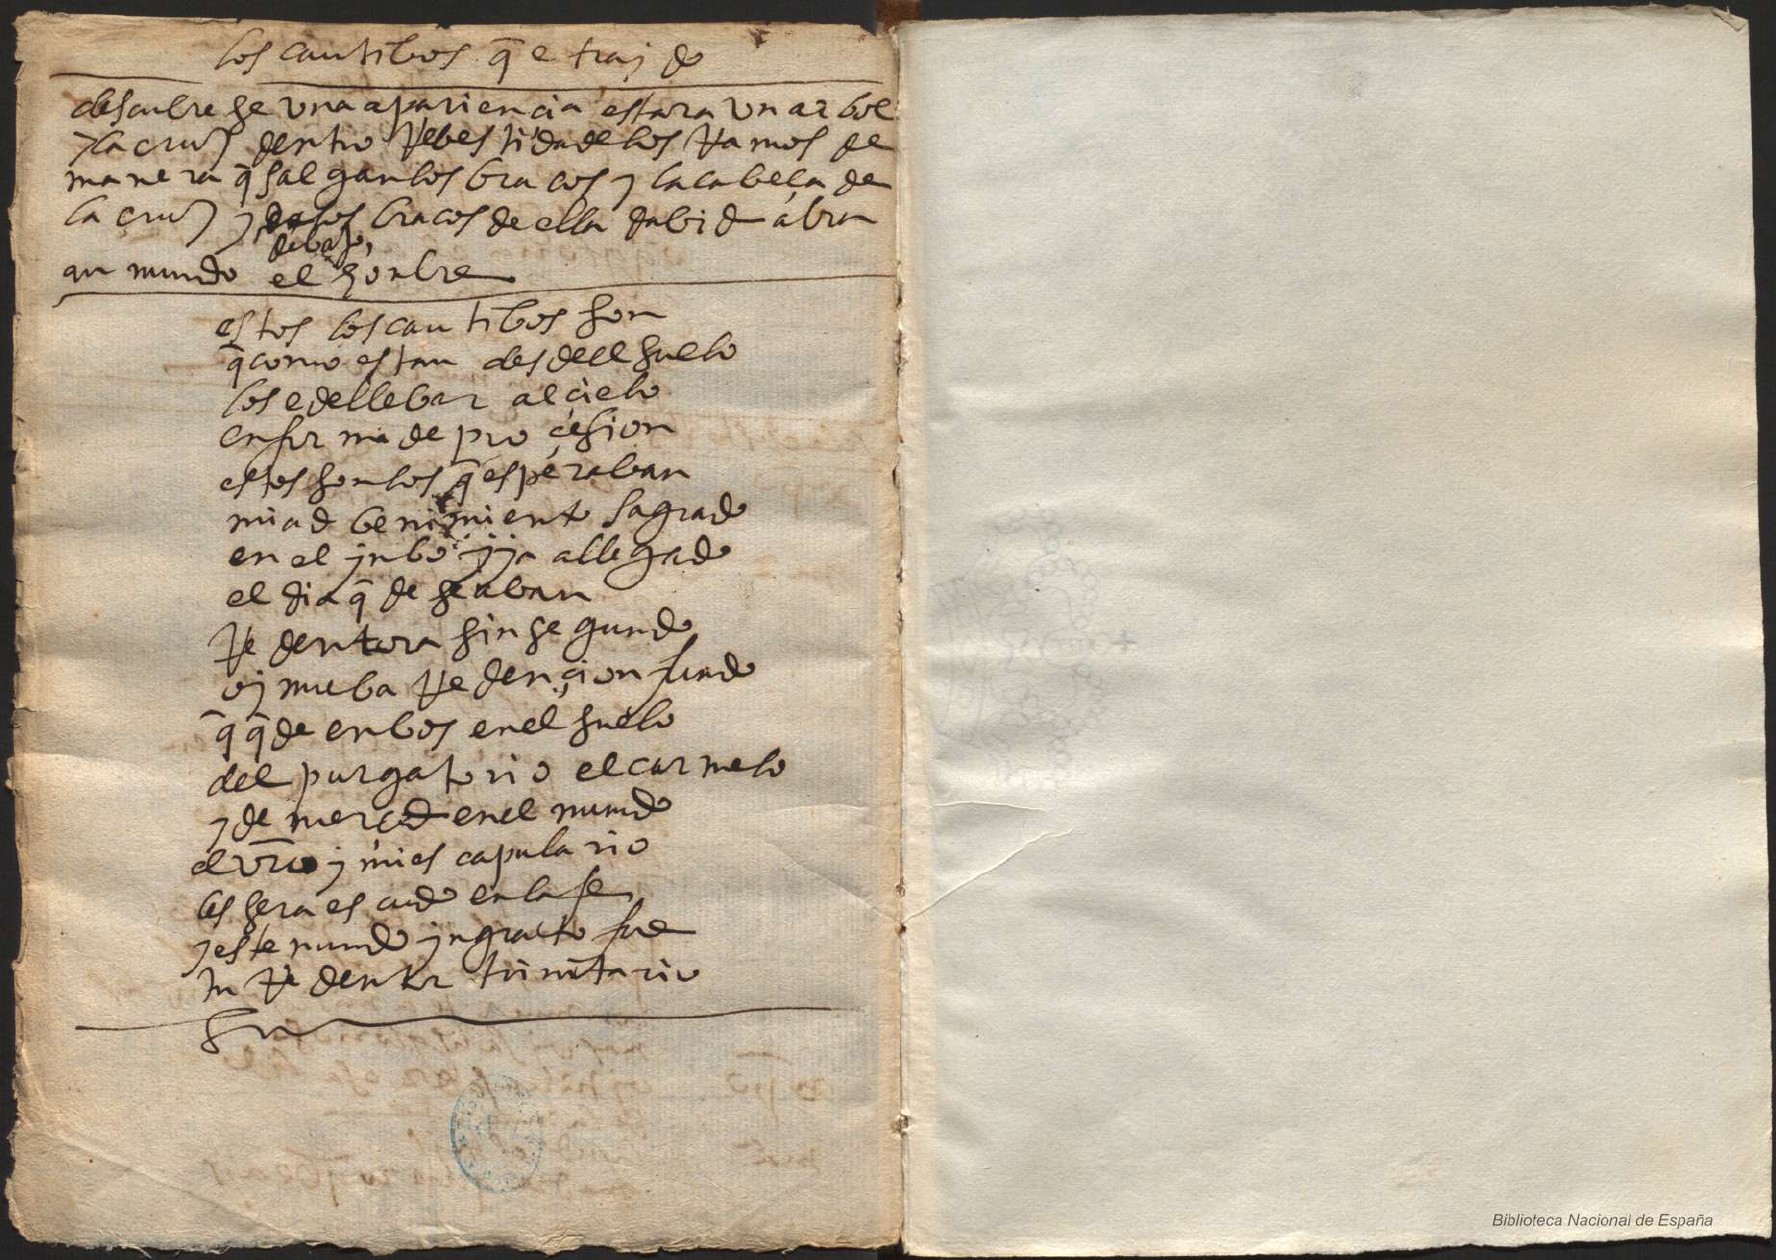 los cautibos q̄ e traydo
descubrese una apariencia estara un arbol
y la cruz dentro Rebestida de los Ramos de
manera q̄ salgan los braços y la cabeça de
la cruz y debajo, de los braços de ella dabid abra
an mundo el honbre
estos los cautibos son
q̄ como estan desdel suelo
los e de llebar al cielo
en forma de proçesion
estos son los q̄ esperaban
mi adbenimiento sagrado
en el ynbo y ya a llegado
el dia q̄ deseaban
Redentora sin segundo
oy nueba Redençion fundo
q̄ q̄de en bos en el suelo
del purgatorio el carmelo
y de merçed en el mundo
el vr̄o y mi escapulario
les sera escudo en la fe
y este mundo yngrato fue
tu Redentor trinitario
Biblioteca Nacional de España